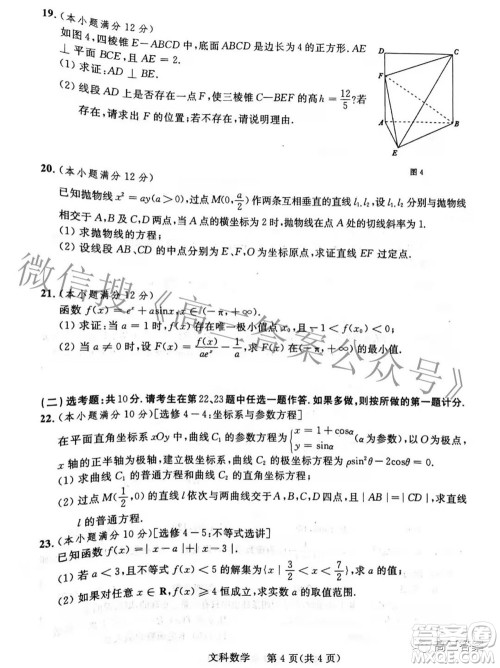 19.(本小题满分12分)
如图4,四棱锥E-ABCD中,底面ABCD是边长为4的正方形.AE
⊥平面BCE,且AE=2.
(1)求证:AD⊥BE.
(2)线段AD上是否存在一点F,使三棱锥C-BEF的高h=12/5?若
存在,请求出F的位置;若不存在,说明理由.
D
C
F
A
B
E
图4
20.(本小题满分12分)
已知抛物线x²=ay(a>0),过点M(0,a/2)作两条互相垂直的直线l₁,l₂,设l₁,l₂分别与抛物线
相交于A,B及C,D两点,当A点的横坐标为2时,抛物线在点A处的切线斜率为1.
(1)求抛物线的方程;
(2)设线段AB、CD的中点分别为E、F,O为坐标原点,求证直线EF过定点.
21.(本小题满分12分)
函数f(x)=eˣ+asinx,x∈(-π,+∞).
(1)求证:当a=1时,f(x)存在唯一极小值点x₀,且-1<f(x₀)<0;
(2)当a≠0时,设F(x)=f(x)/aeˣ-1/a,求F(x)的最小值.
(二)选考题:共10分.请考生在第22、23题中任选一题作答.如果多做,则按所做的第一题计分.
22.(本小题满分10分)[选修4-4:坐标系与参数方程]
在平面直角坐标系xOy中,曲线C₁的参数方程为{x=1+cosα y=sinα(α为参数),以坐标原点为极点,
x的正半轴为极轴,建立极坐标系,曲线C₂的极坐标方程为ρsin²θ=2cosθ.
(1)求曲线C₁的普通方程和曲线C₂的直角坐标方程;
(2)过点M(1/2,0)的直线l依次与两曲线交于A、B、C、D四点,且|AB|=|CD|,求直线
l的普通方程.
23.(本小题满分10分)[选修4-5:不等式选讲]
已知函数f(x)=|x-a|+|x-3|.
(1)若a<3,且不等式f(x)<5的解集为{x|3/2<x<7/2},求a的值;
(2)如果对任意x∈R,f(x)≥4恒成立,求实数a的取值范围.
文科数学 第4页(共4页)
微信搜《高三答案公众号》